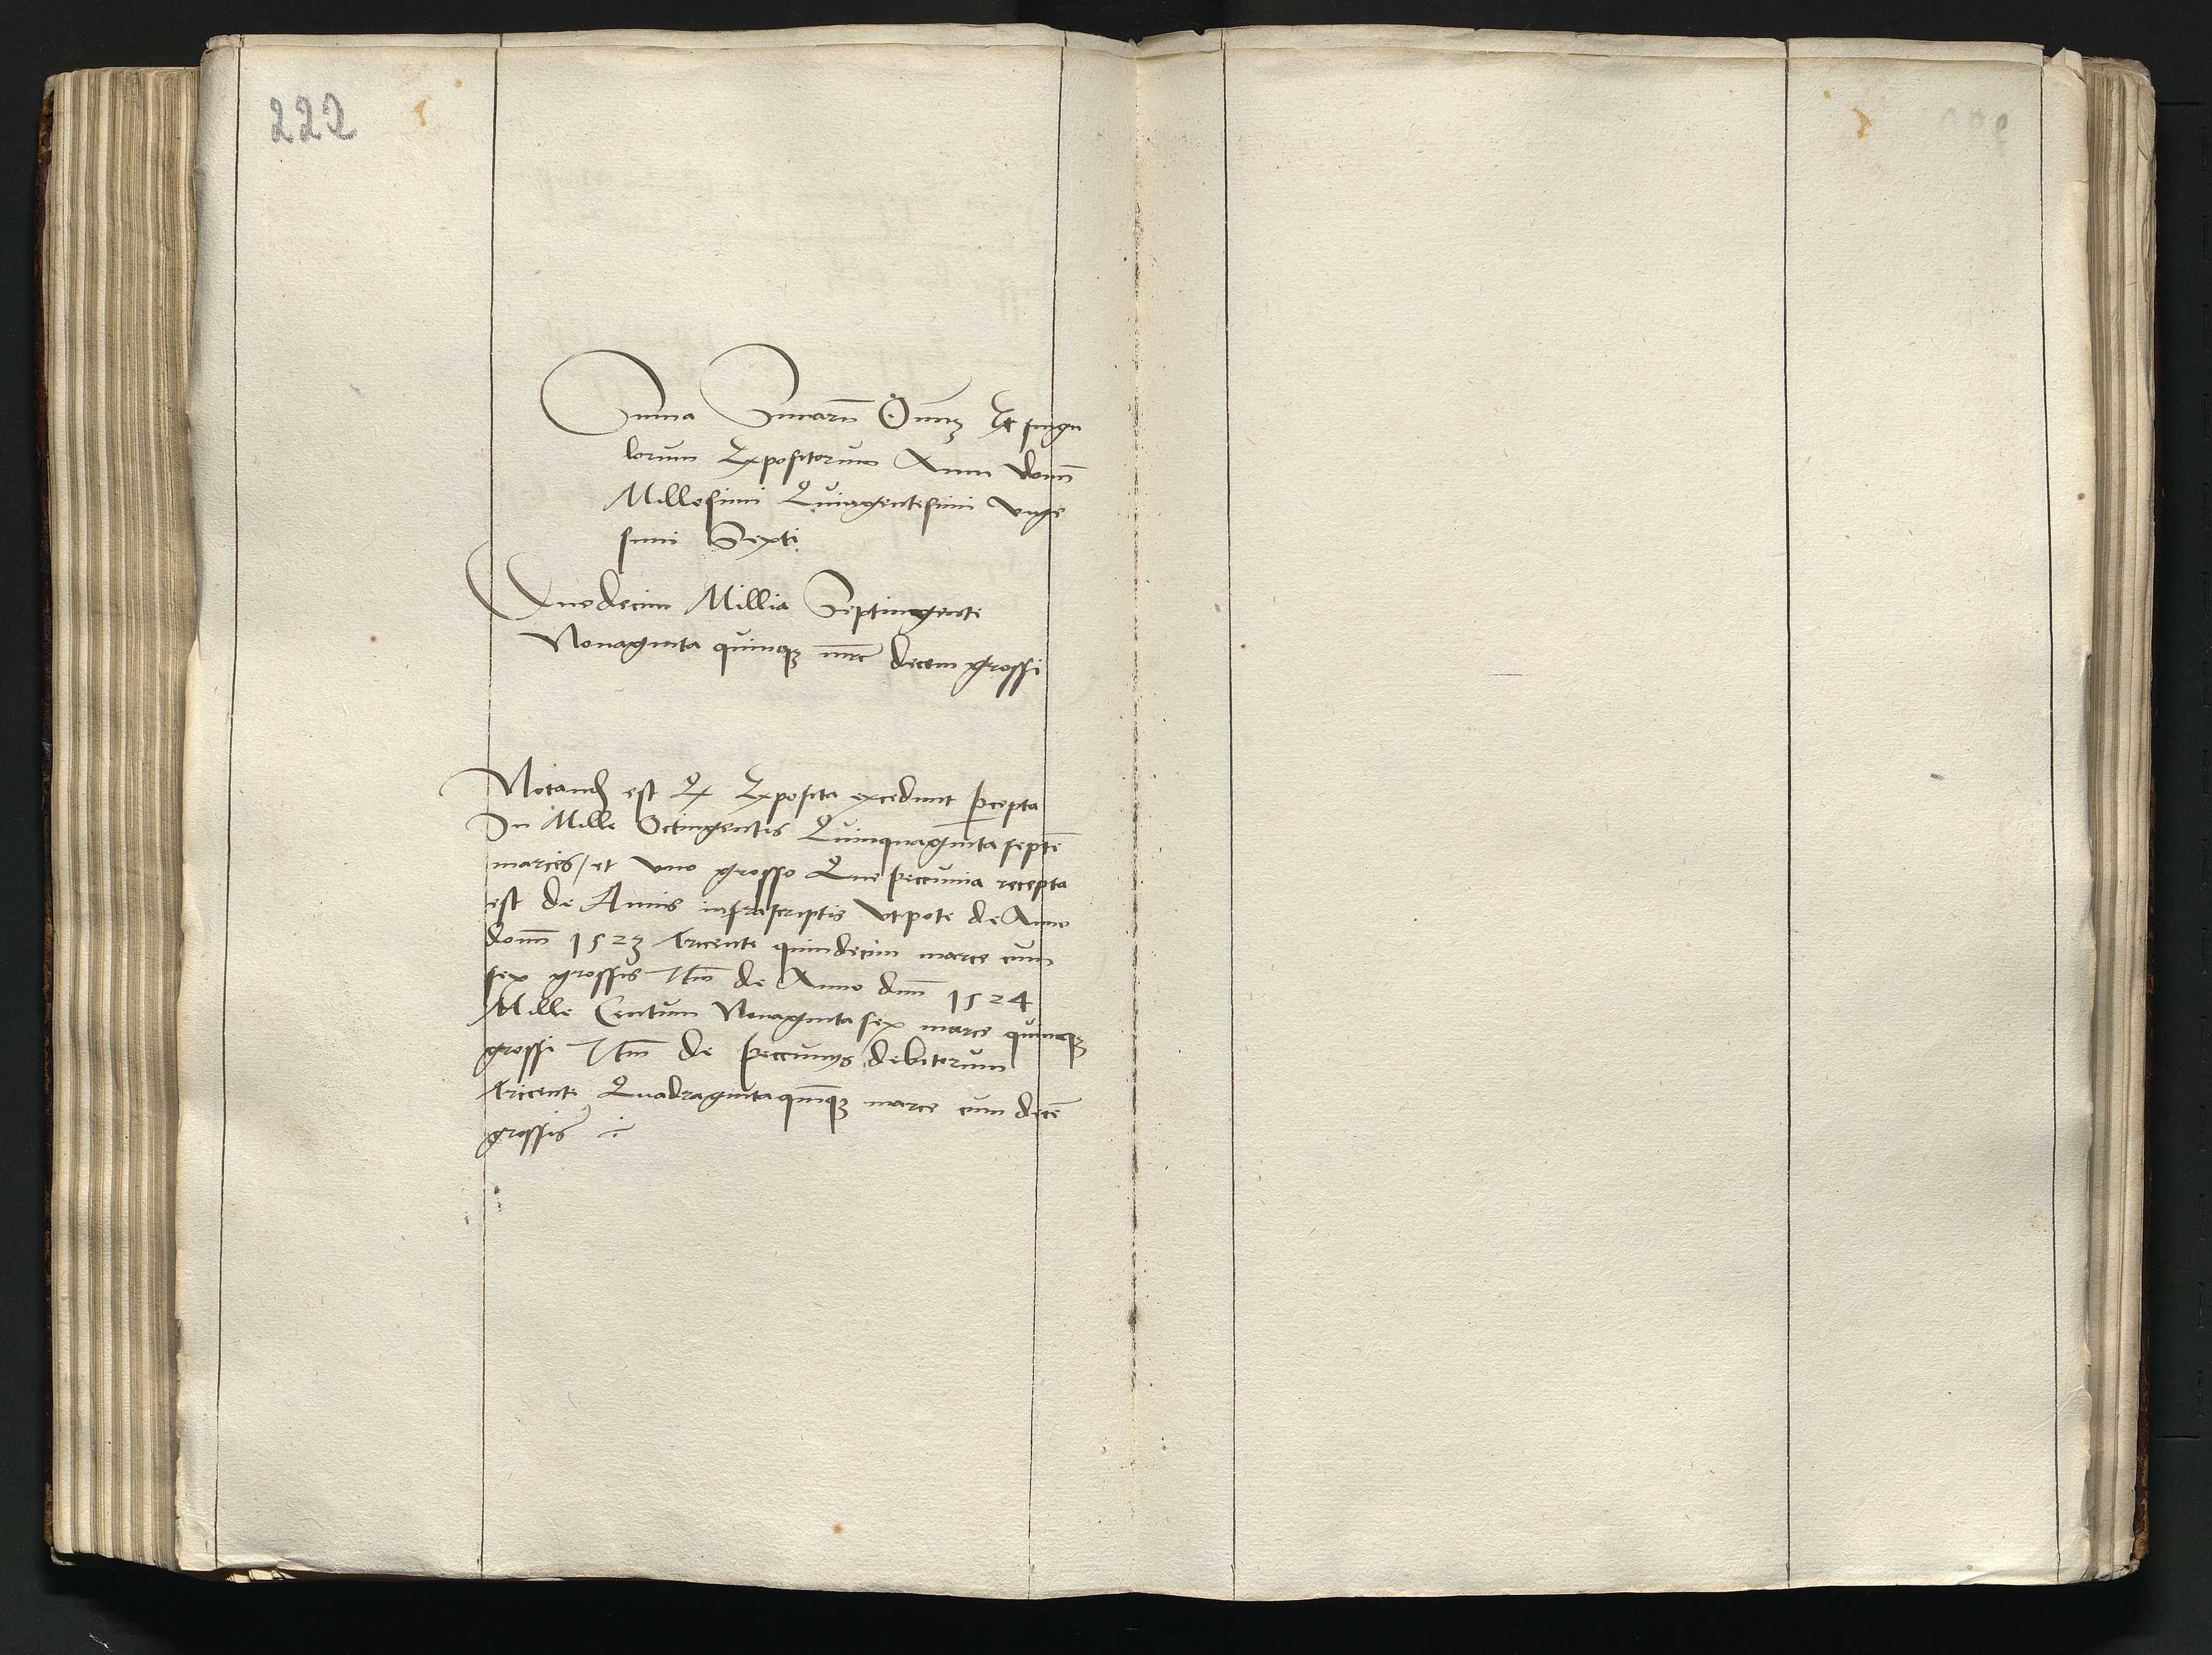 222
Suma Sumarū Oīmꝫ Et singu
lorum Expositorum Anni domī
Millesimi Quingentesimi vige
simi Sexti
Duodecim Millia Septingente
Nonaginta quinqꝫ mrc decem grossi
Notand est Qꝫ Exposita excedunt ꝑcepta
In Mille Octingentis Quinquaginta septē
marcis / et vno grosso Que peccunia recepta
est de Annis infrascriptis vtpote de Anno
domī 1523 Tricente quindecim marce cum
sex grossis Itm̄ de Anno dm̄ 1524
Mille Centum Nonaginta sex marce quinqꝫ
grossi Itm̄ de peccunijs debitorum
Tricente Quadraginta quīqꝫ marce cum decē
grossis